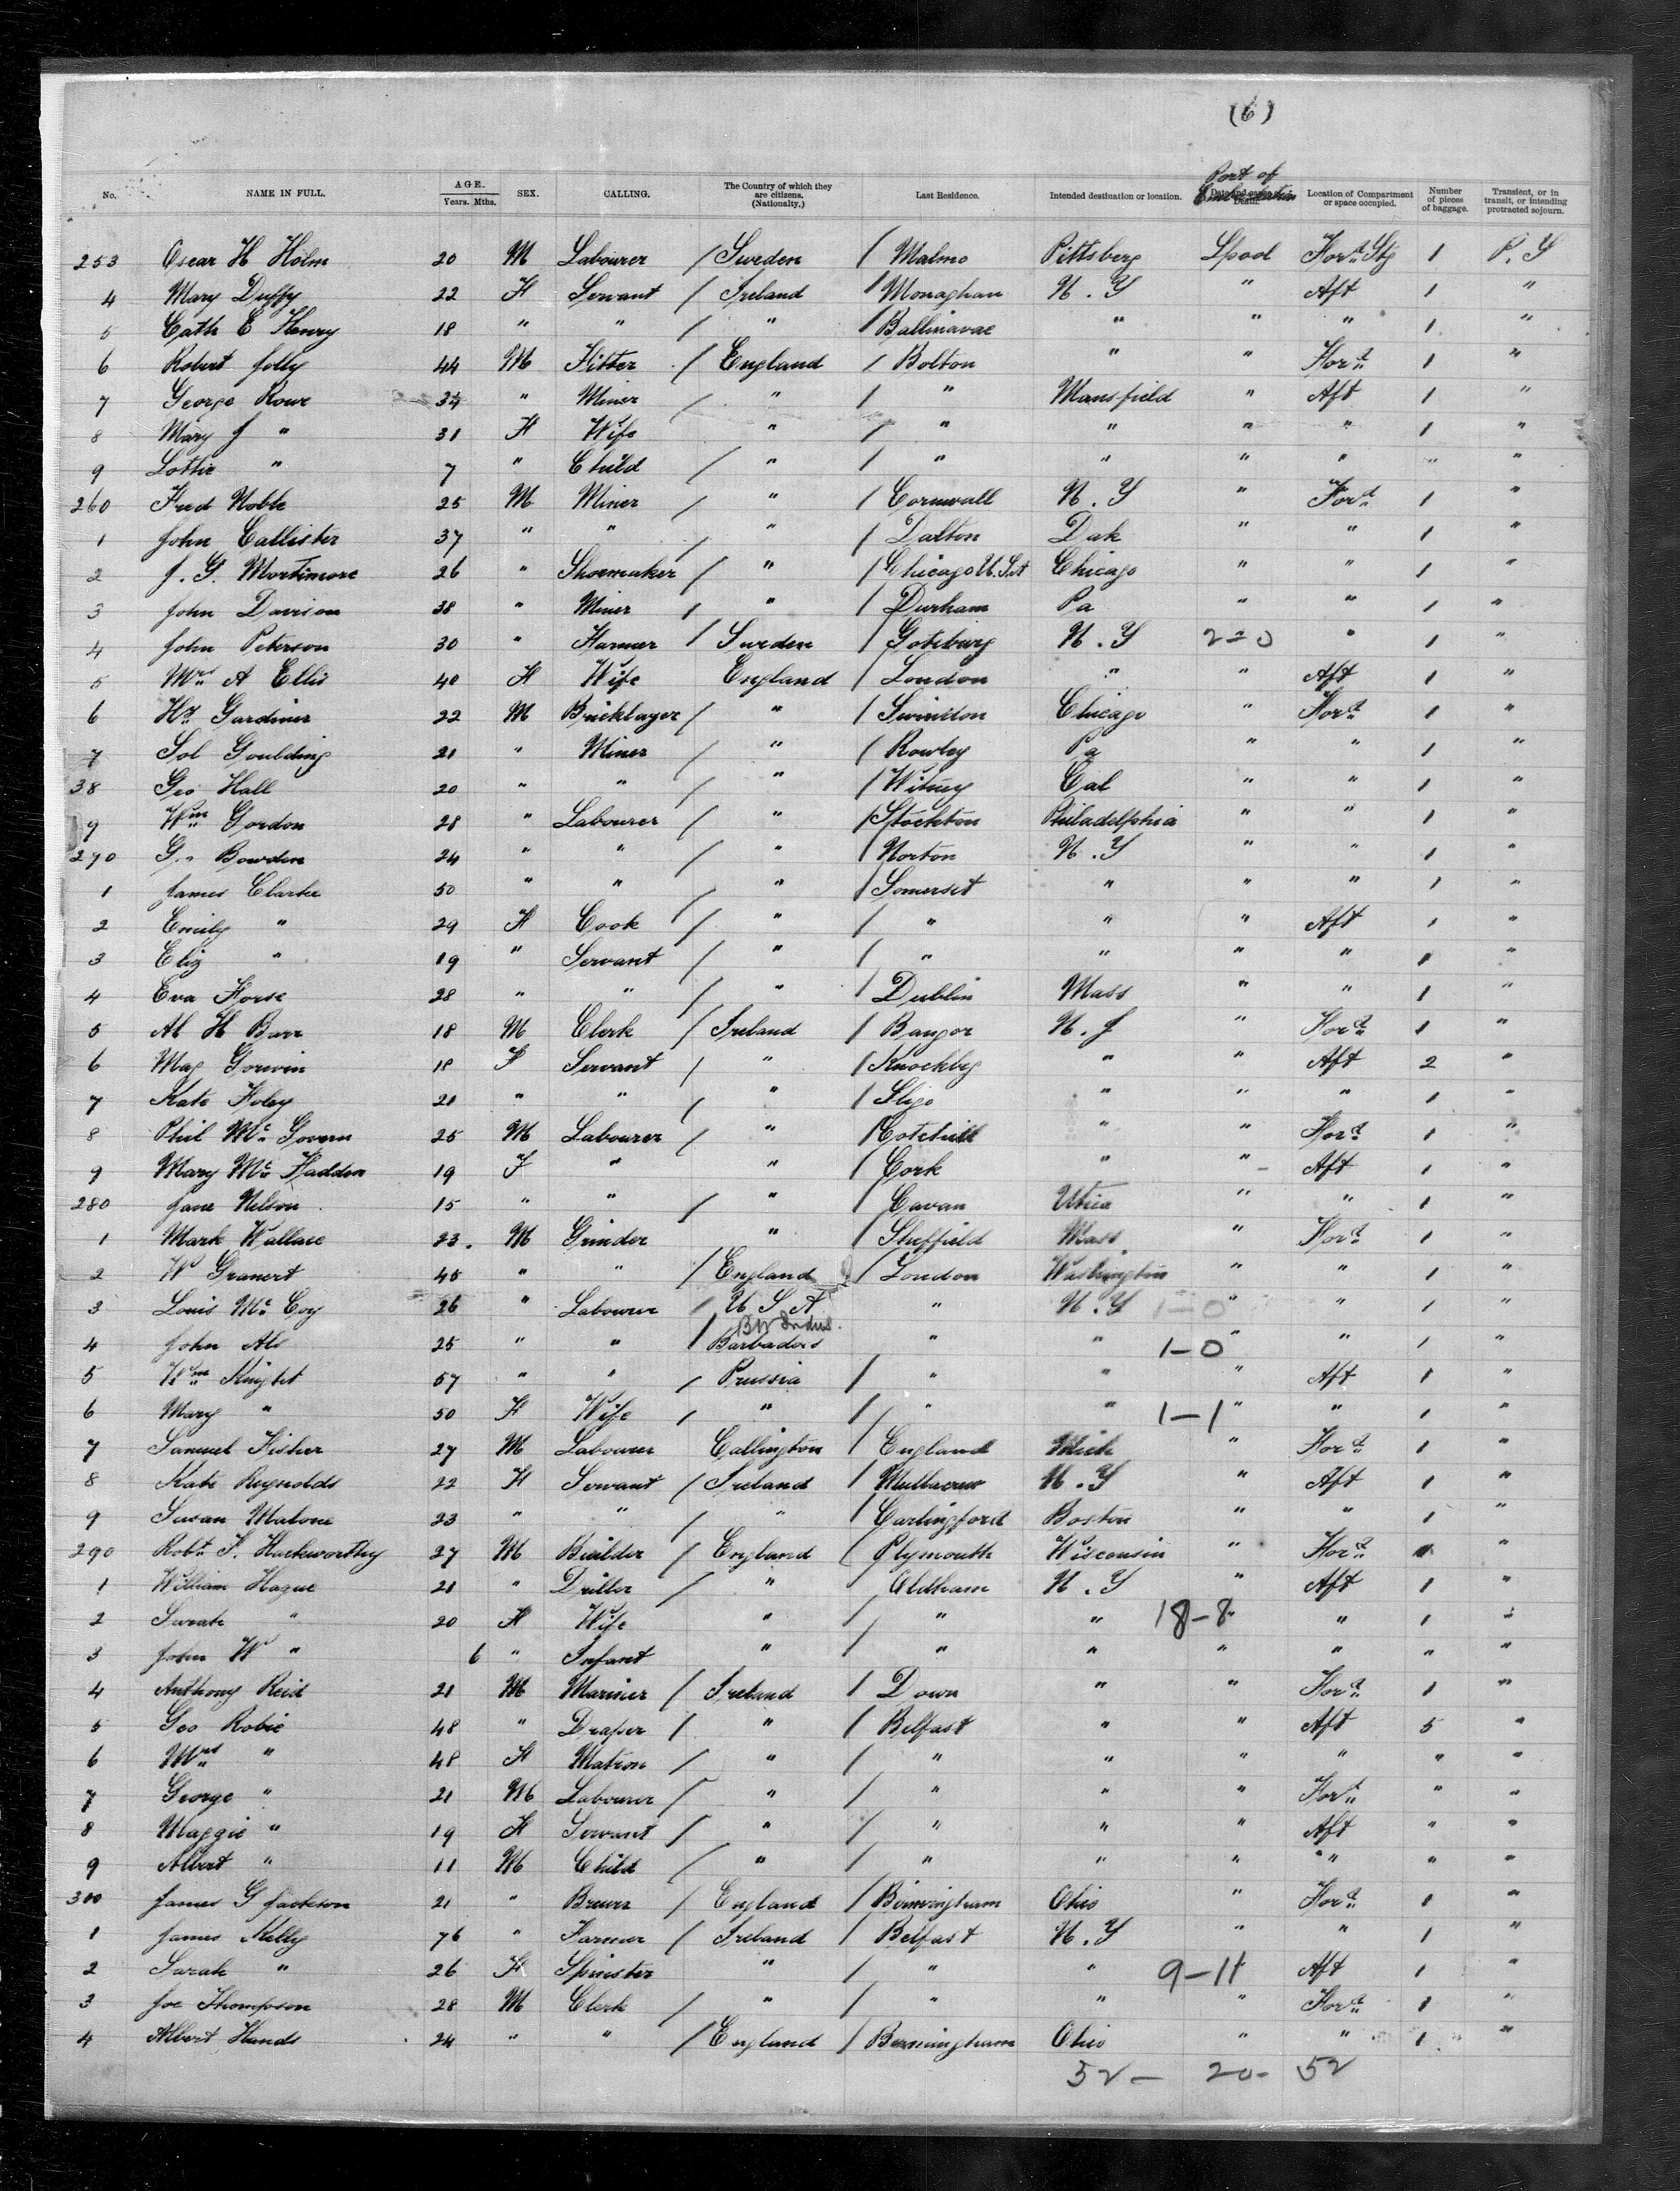 (6)
Port of
Embarkation
No. NAME IN FULL. AGE. Years. Mths. SEX. CALLING. The Country of which they are citizens. (Nationalty.) Last Residence. Intended destination or location. Date and cause of Death. Location of Compartment or space occupied. Number of pieces of baggage. Transient, or in transit, or intending protracted sojourn.
253 Oscar H Holm 20 M Labourer / Sweden / Malmo Pittsberg Lpool For'd Stg 1 P. S
4 Mary Duffy 22 F Servant / Ireland / Monaghan N. Y " Aft 1 "
5 Cath E Henry 18 " " / " / Ballinavae " " " 1 "
6 Robert Jolly 44 M Fitter / England / Bolton " " For'd 1 "
7 George Rowe 34 " Miner / " / " Mansfield " Aft 1 "
8 Mary J " 31 F Wife " / " " " " 1 "
9 Lottie " 7 " Child / " / " " " " " "
260 Fred Noble 25 M Miner / " / Cornwall N. Y " For'd 1 "
1 John Callister 37 " " / " / Dalton Dak " " 1 "
2 J. G. Mortimore 26 " Shoemaker / " / Chicago U. Sts Chicago " " 1 "
3 John Davison 38 " Miner / " / Durham Pa " " 1 "
4 John Peterson 30 " Farmer / Sweden / Goteburg N. Y 2-0 " 1 "
5 Mrs A Ellis 40 F Wife England / London " " Aft 1 "
6 Hy Gardiner 22 M Bricklayer / " / Swindon Chicago " For'd 1 "
7 Sol Goulding 21 " Miner / " / Rowley Pa " " 1 "
38 Geo Hall 20 " " / " / Witney Cal " " 1 "
9 Wm Gordon 28 " Labourer / " / Stockton Philadelphia " " 1 "
270 G. " Bowden 24 " " / " / Norton N. Y " " 1 "
1 James Clarke 50 " " / " / Somerset " " " 1 "
2 Emily " 29 F Cook / " / " " " Aft 1 "
3 Eliz " 19 " Servant / " / " " " " 1 "
4 Eva Horse 28 " " / " / Dublin Mass " " 1 "
5 Al H Barr 18 M Clerk / Ireland / Bangor N. J " For'd 1 "
6 Mag Gorwin 18 F Servant / " / Knockbeg " " Aft 2 "
7 Kate Foley 21 " " / " / Sligo " " " 1 "
8 Phil Mc Govern 25 M Labourer / " / Cotehill " " For'd 1 "
9 Mary Mc Fadden 19 F " " / Cork " " Aft 1 "
280 Jane Nelson 15 " " / " / Cavan Utica " " 1 "
1 Mark Wallace 23. M Grinder " / Sheffield Mass " For'd 1 "
2 W Granert 45 " " / England / London Washington " " 1 "
3 Louis Mc Coy 26 " Labourer / U S A " N. Y 1-0 " " 1 "
B W Indies.
4 John Als 25 " " / Barbados " " 1-0 " " 1 "
5 Wm Knight 57 " " / Prussia / " " " Aft 1 "
6 Mary " 50 F Wife / " / " " 1-1 " " 1 "
7 Samuel Fisher 27 M Labourer Callington / England Mich " For'd 1 "
8 Kate Reynolds 22 F Servant / Ireland / Mullacrew N. Y " Aft 1 "
9 Susan Malone 23 " " / " / Carlingford Boston " " 1 "
290 Robt F. Hackworthy 27 M Builder / England / Plymouth Wisconsin " For'd "
1 William Hague 21 " Driller / " Oldham N. Y " Aft 1 "
2 Sarah " 20 F Wife " / " " 18-8 " " 1 "
3 John W " 6 " Infant " / " " " " " "
4 Anthony Reid 21 M Mariner / Ireland / Down " " For'd 1 "
5 Geo Robie 48 " Draper / " / Belfast " " Aft 5 "
6 Mrs " 48 F Matron / " / " " " " " "
7 George " 21 M Labourer / " / " " " For'd " "
8 Maggie " 19 F Servant / " / " " " Aft " "
9 Albert " 11 M Child / " / " " " " " "
300 James G Jackson 21 " Brewer / England / Birmingham Ohio " For'd 1 "
1 James Kelly 76 " Farmer / Ireland / Belfast N. Y " " 1 "
2 Sarah " 26 F Spinster " / " " 9-11 Aft 1 "
3 Joe Thompson 28 M Clerk / " / " " " For'd 1 "
4 Albert Hands 24 " " / England / Bermingham Ohio " " 1 "
52- 20- 52